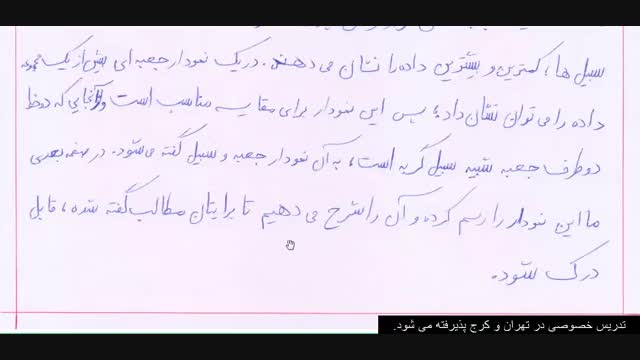 سبیل ها، کمترین و بیشترین داده را نشان می دهند. در یک نمودار جعبه ای بیش از یک مجموعه
داده را می توان نشان داد؛ پس این نمودار برای مقایسه مناسب است و از آنجایی که دو خط
دو طرف جعبه شبیه سبیل گربه است، به آن نمودار جعبه و سبیل گفته می شود. در صفحه بعدی
ما این نمودار را رسم کرده و آن را شرح می دهیم تا برایتان مطالب گفته شده، قابل
درک شود.
تدریس خصوصی در تهران و کرج پذیرفته می شود.